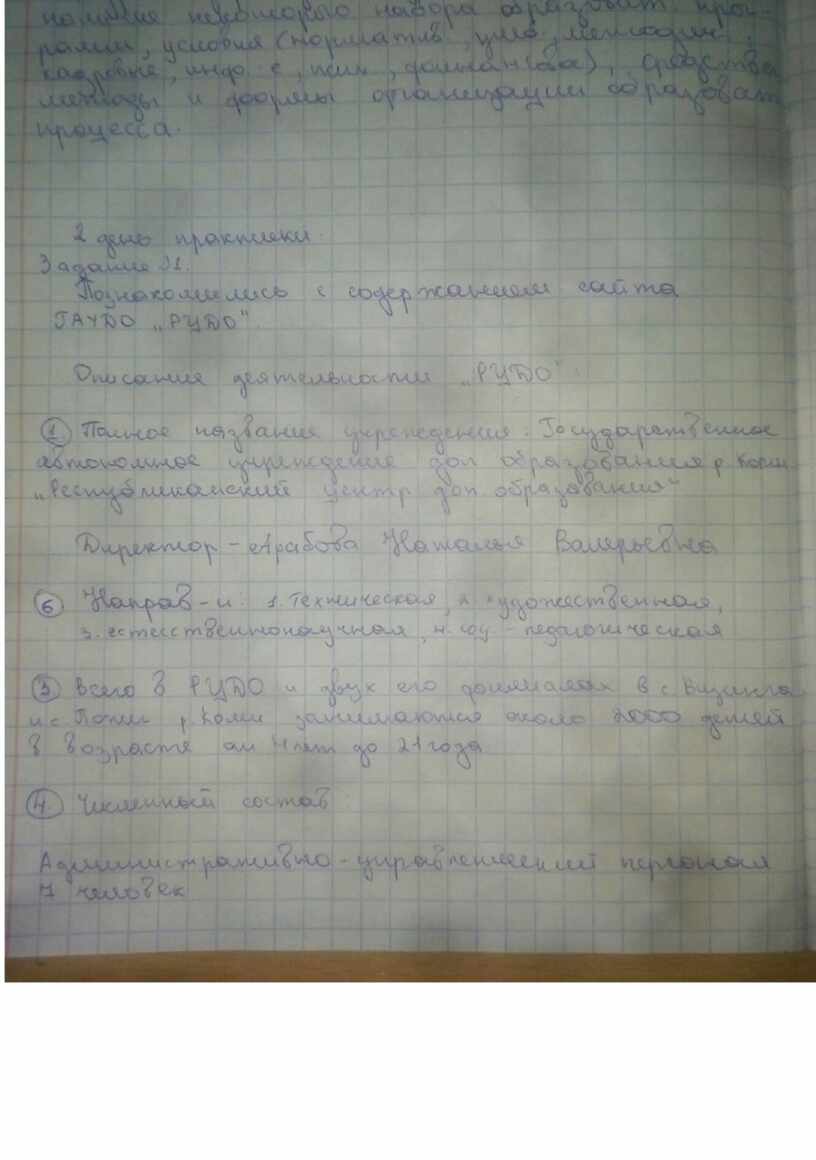 наличие некоторого набора образоват. прог-
рамм, условия (норматив, умо, методич,
кадровые, инф-е, псих, финансовая), средства
методы и формы организации образоват
процесса.
2 день практики.
Задание 1.
Познакомились с содержанием сайта
ГАУДО „РЦДО"
Описания деятельности „РЦДО".
① Полное название учреждения: Государственное
автономное учреждение доп образования р. Коми
„Республиканский центр доп. образования"
Директор - Арабова Наталья Валерьевна
⑥ Направ-и: 1. Техническая, 2. художественная,
3. естесственнонаучная, 4. соц - педагогическая
③ Всего в РЦДО и двух его филиалах в с Визинга
и с р Коми занимаются около 2000 детей
в возрасте от 4 лет до 21 года
④ Численный состав:
Административно-управленческий персонал
7 человек